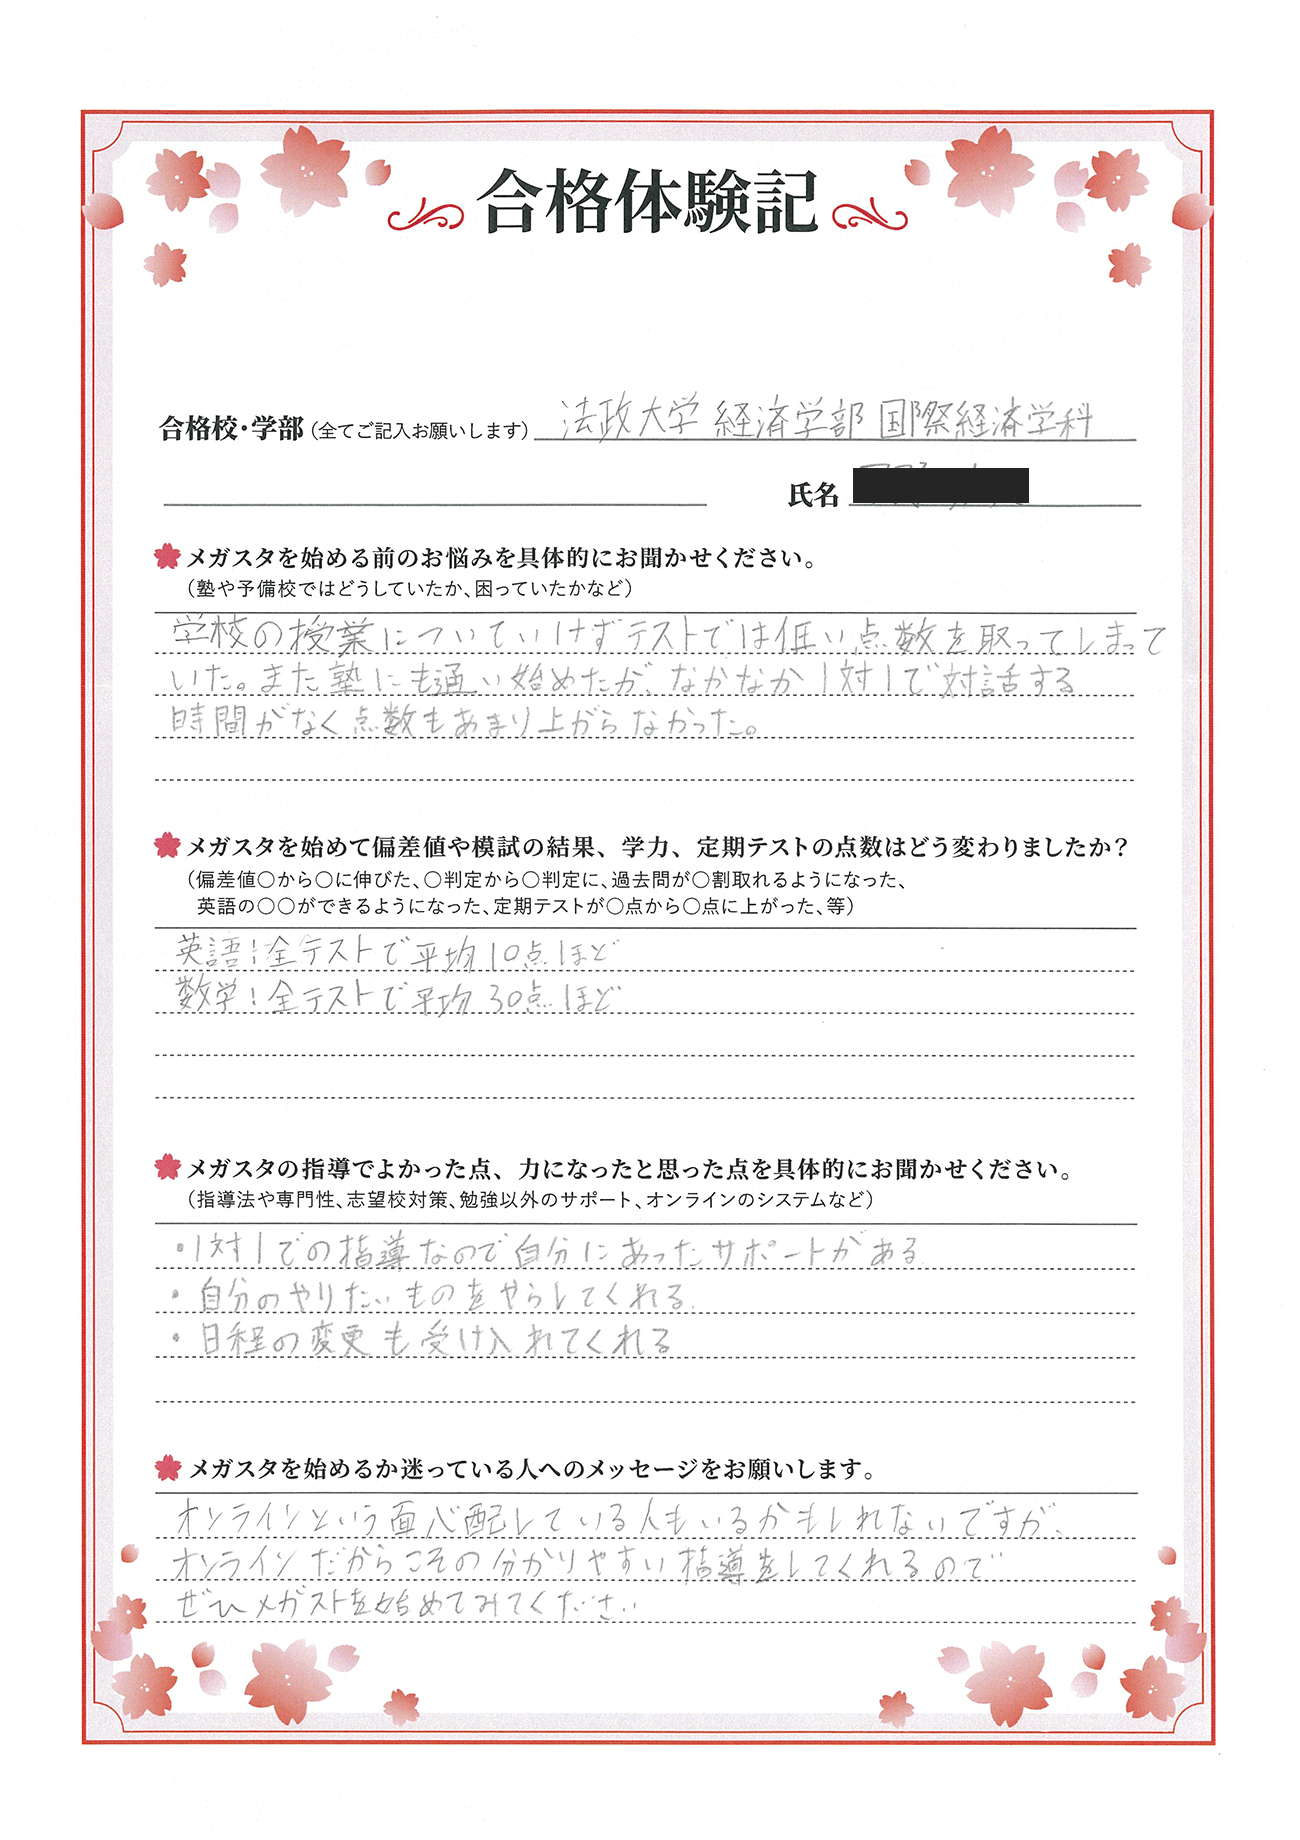 合格体験記
合格校・学部（全てご記入お願いします） 法政大学 経済学部 国際経済学科
氏名
メガスタを始める前のお悩みを具体的にお聞かせください。
（塾や予備校ではどうしていたか、困っていたかなど）
学校の授業についていけずテストでは低い点数を取ってしまって
いた。また塾にも通い始めたが、なかなか1対1で対話する
時間がなく点数もあまり上がらなかった。
メガスタを始めて偏差値や模試の結果、学力、定期テストの点数はどう変わりましたか？
（偏差値〇から〇に伸びた、〇判定から〇判定に、過去問が〇割取れるようになった、
英語の〇〇ができるようになった、定期テストが〇点から〇点に上がった、等）
英語：全テストで平均10点ほど
数学：全テストで平均30点ほど
メガスタの指導でよかった点、力になったと思った点を具体的にお聞かせください。
（指導法や専門性、志望校対策、勉強以外のサポート、オンラインのシステムなど）
・1対1での指導なので自分にあったサポートがある
・自分のやりたいものをやらしてくれる
・日程の変更も受け入れてくれる
メガスタを始めるか迷っている人へのメッセージをお願いします。
オンラインという面心配している人もいるかもしれないですが、
オンラインだからこその分かりやすい指導をしてくれるので
ぜひメガストを始めてみてください